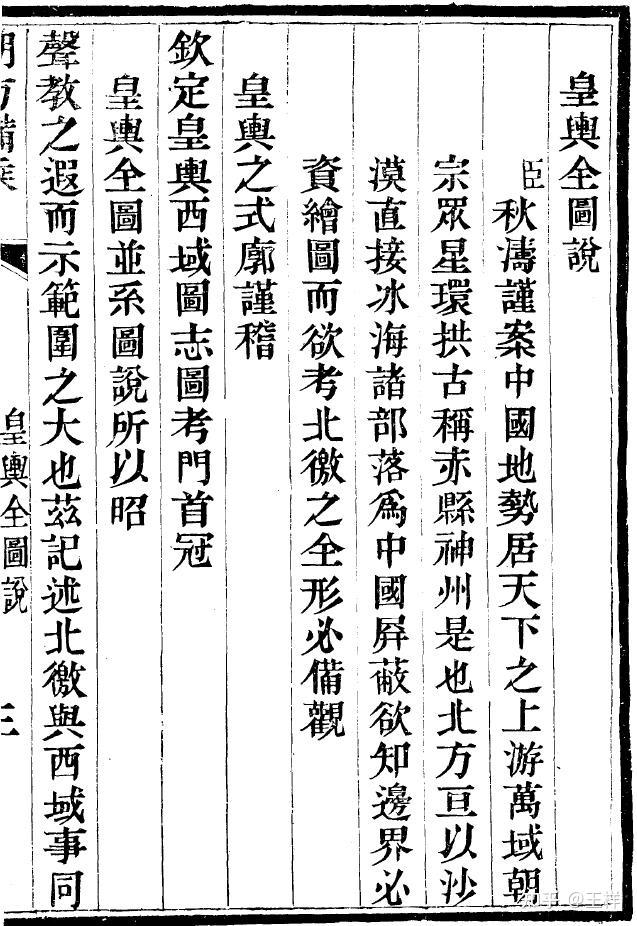 皇輿全圖說
臣秋濤謹案中國地勢居天下之上游萬域朝
宗眾星環拱古稱赤縣神州是也北方亘以沙
漠直接冰海諸部落爲中國屛蔽欲知邊界必
資繪圖而欲考北徼之全形必備觀
皇輿之式廓謹稽
欽定皇輿西域圖志圖考門首冠
皇輿全圖並系圖說所以昭
聲教之遐而示範圍之大也茲記述北徼與西域事同
朔方備乘
皇輿全圖說
三
知乎 @王祥